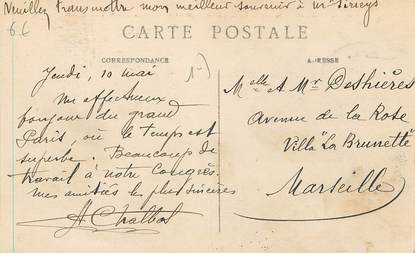 Veuillez transmettre mon meilleur souvenir à Mr
CARTE POSTALE
CORRESPONDANCE
ADRESSE
Jeudi, 10 mai
Un affectueux
bonjour du grand
Paris, où le temps est
superbe. Beaucoup de
travail à notre Congrès.
Mes amitiés les plus sincères
Melle et Mr Deshières
Avenue de la Rose
Villa "La Brunette"
Marseille